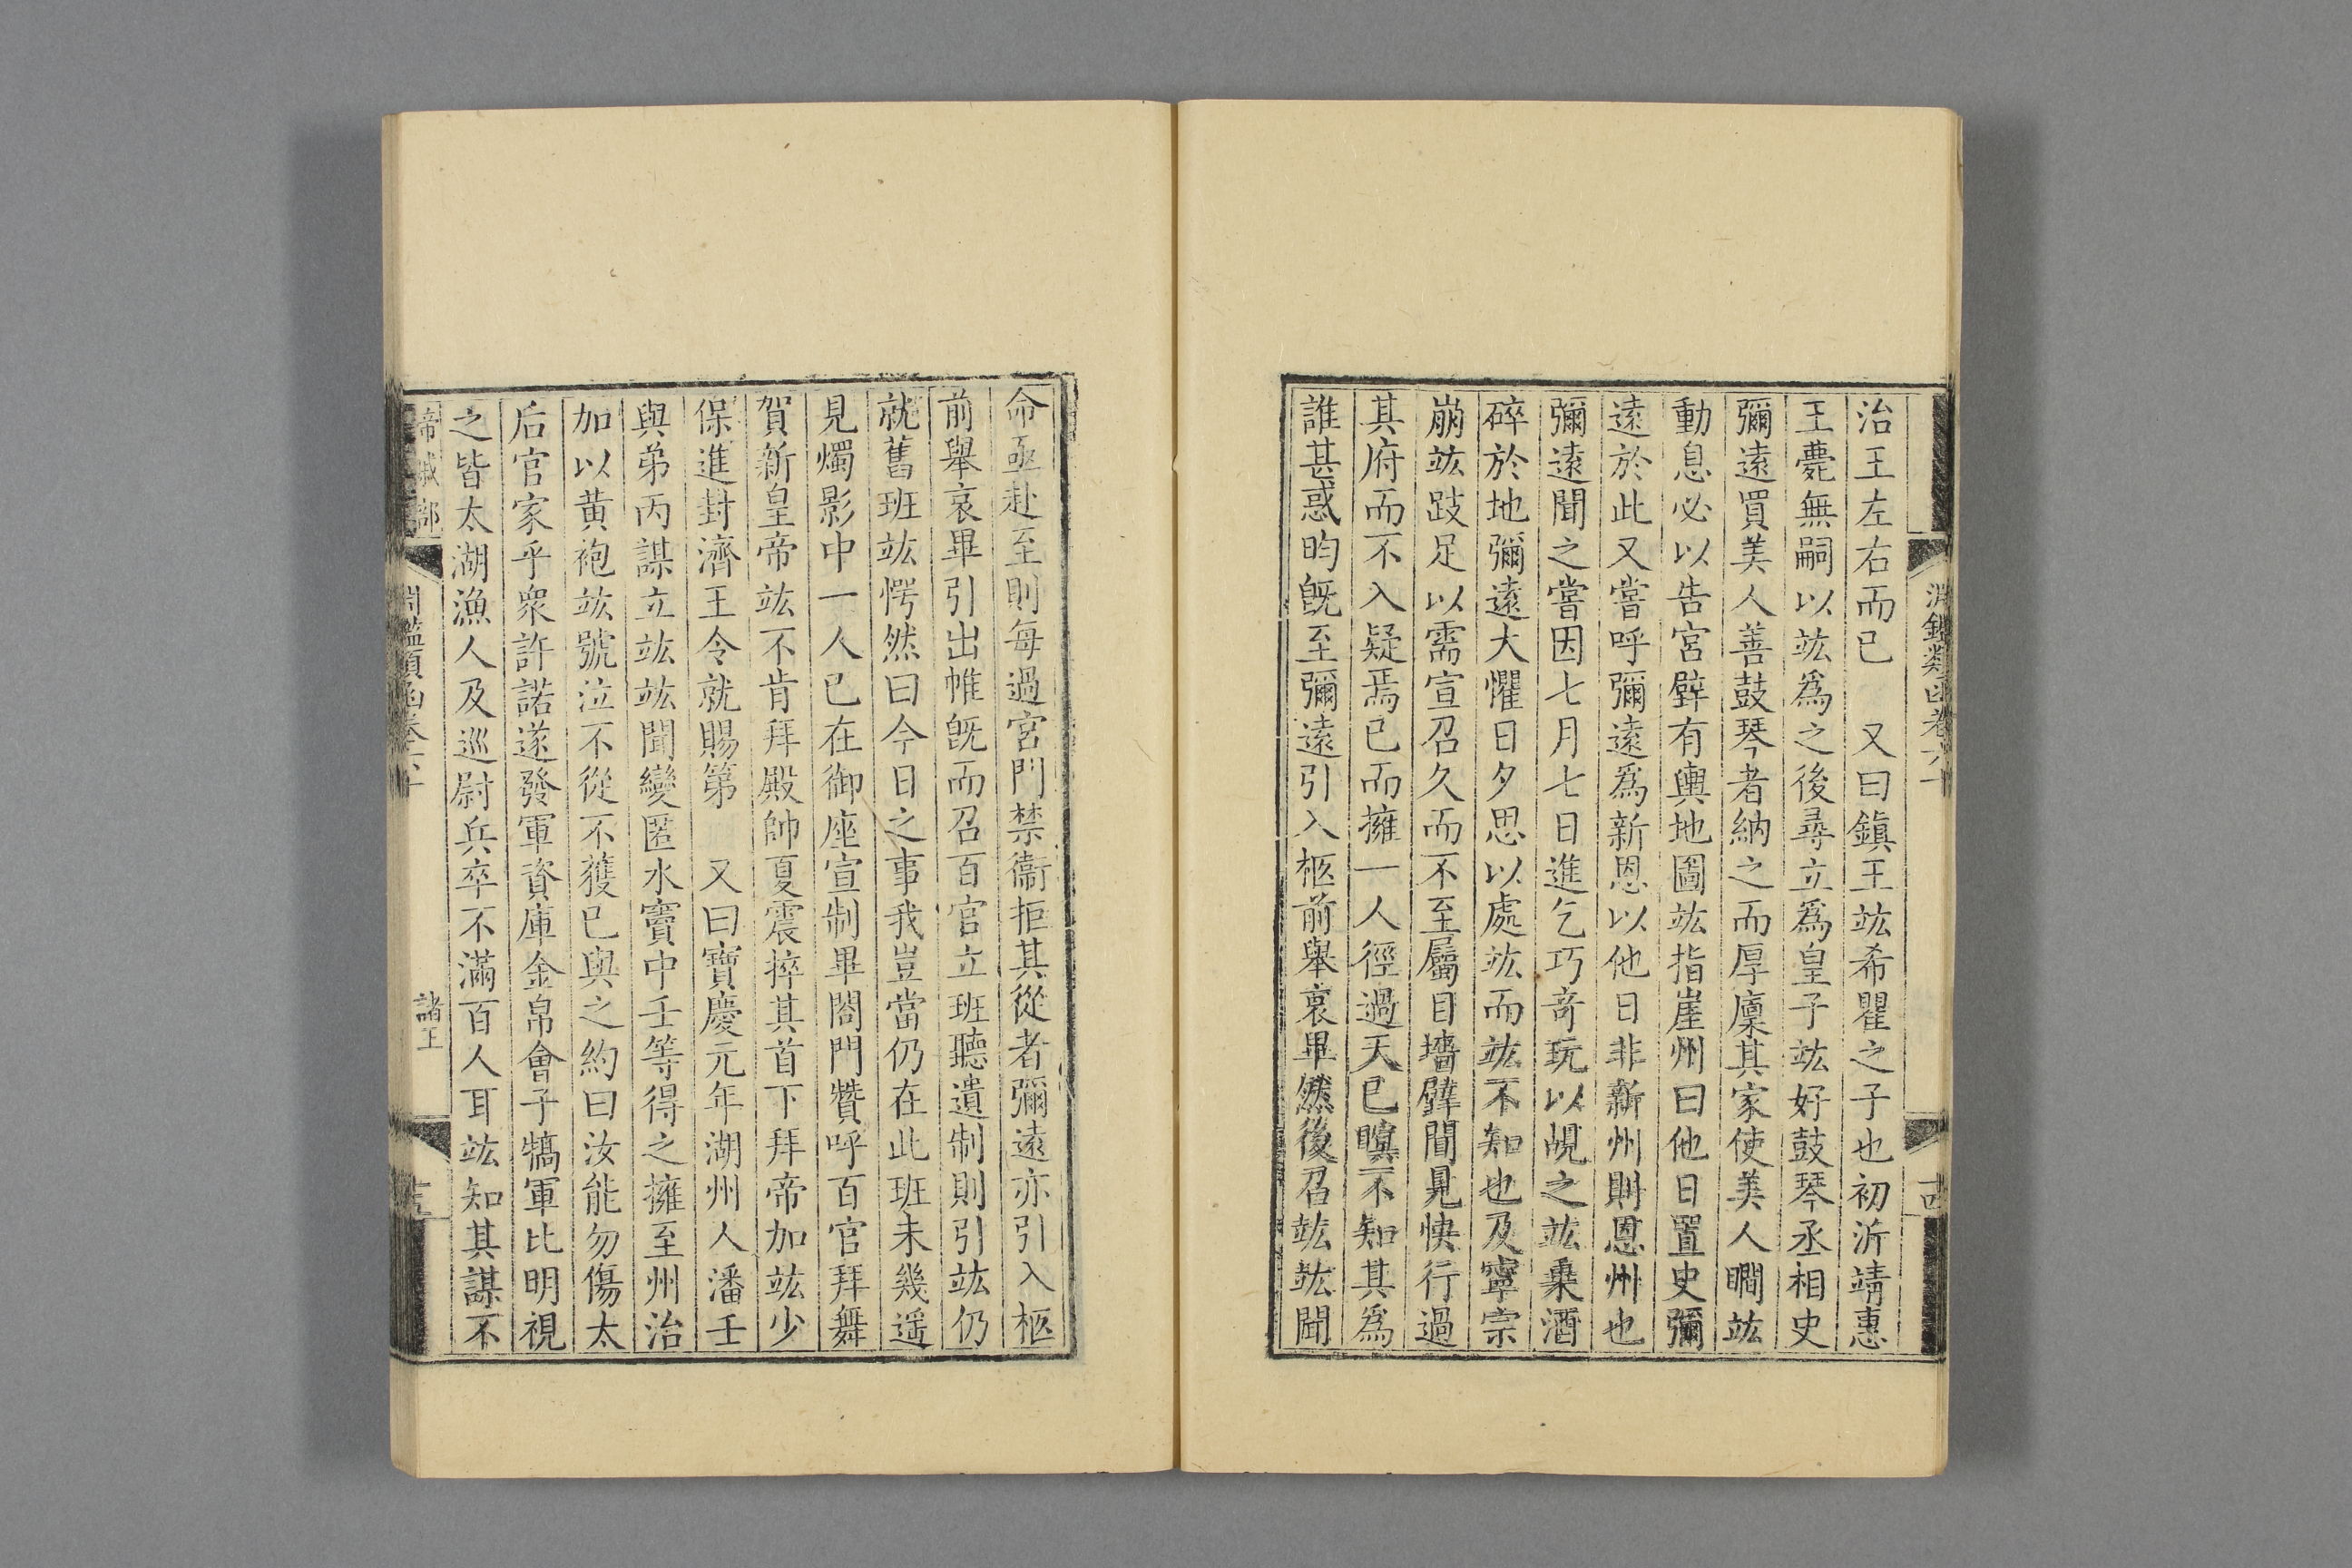 淵鑑類函卷六十
治王左右而已　又曰鎮王竑希瞿之子也初沂靖惠
王薨無嗣以竑爲之後尋立爲皇子竑好鼓琴丞相史
彌遠買美人善鼓琴者納之而厚廩其家使美人瞯竑
動息必以告宮壁有輿地圖竑指崖州曰他日置史彌
遠於此又嘗呼彌遠爲新恩以他日非新州則恩州也
彌遠聞之嘗因七月七日進乞巧奇玩以覘之竑乗酒
碎於地彌遠大懼日夕思以處竑而竑不知也及寧宗
崩竑跂足以需宣召久而不至屬目墻壁間見快行過
其府而不入疑焉已而擁一人徑過天已暝不知其爲
誰甚惑昀旣至彌遠引入柩前舉哀畢然後召竑竑聞
命亟赴至則每過宮門禁衞拒其從者彌遠亦引入柩
前舉哀畢引出帷旣而召百官立班聽遺制則引竑仍
就舊班竑愕然曰今日之事我豈當仍在此班未幾遥
見燭影中一人已在御座宣制畢閤門贊呼百官拜舞
賀新皇帝竑不肯拜殿帥夏震捽其首下拜帝加竑少
保進封濟王令就賜第　又曰寶慶元年湖州人潘壬
與弟丙謀立竑竑聞變匿水竇中壬等得之擁至州治
加以黄袍竑號泣不從不獲已與之約曰汝能勿傷太
后官家乎衆許諾遂發軍資庫金帛會子犒軍比明視
之皆太湖漁人及巡尉兵卒不滿百人耳竑知其謀不
帝戚部　淵鑑類函卷六十　諸王